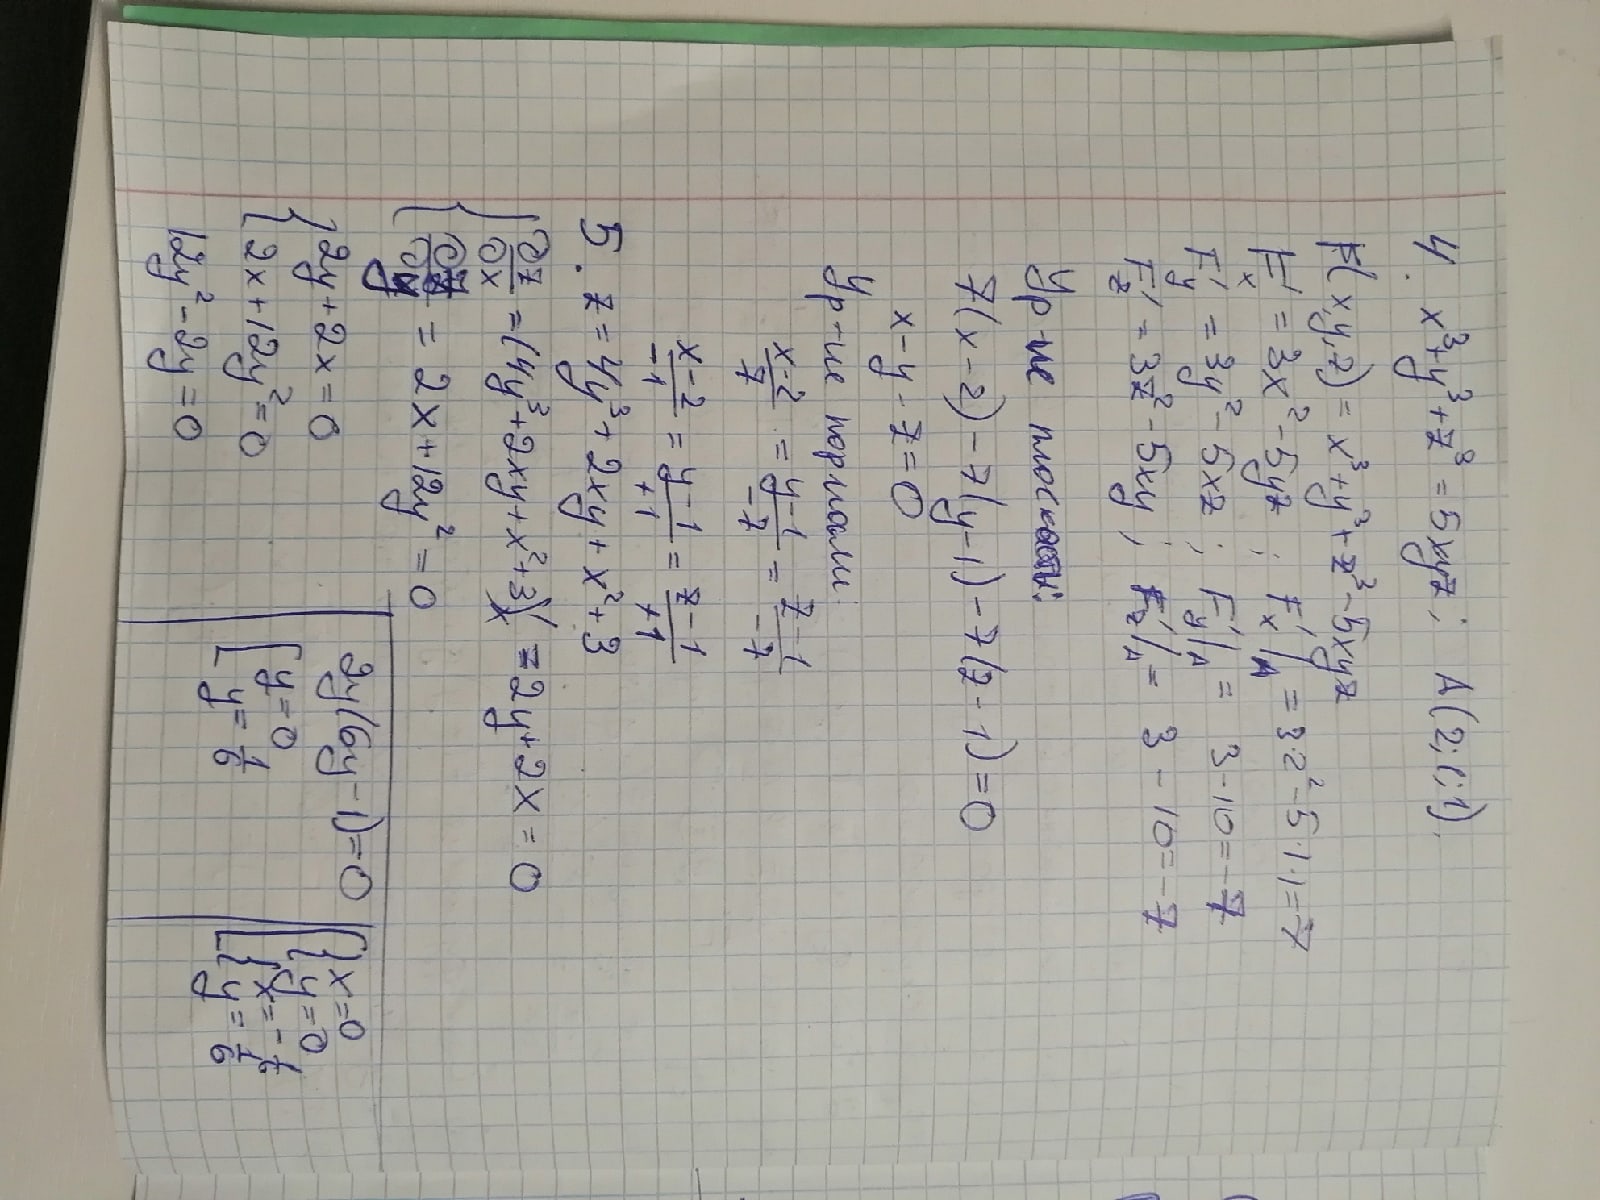 4. x³+y³+z³=5xyz; A(2;1;1).
F(x,y,z)= x³+y³+z³-5xyz
F'x = 3x²-5yz ; F'x|A = 3·2²-5·1·1=7
F'y = 3y²-5xz ; F'y|A = 3-10=-7
F'z = 3z²-5xy ; F'z|A = 3-10=-7
Ур-ие плоскости:
7(x-2)-7(y-1)-7(z-1)=0
x-y-z=0
Ур-ие нормали:
(x-2)/7 = (y-1)/-7 = (z-1)/-7
(x-2)/-1 = (y-1)/+1 = (z-1)/+1
5. z=4y³+2xy+x²+3
{ ∂z/∂x = (4y³+2xy+x²+3)'x = 2y+2x=0
∂z/∂y = 2x+12y²=0
{ 2y+2x=0
2x+12y²=0
12y²-2y=0
2y(6y-1)=0
[ y=0
y=1/6
[ { x=0
y=0
{ x=-1/6
y=1/6